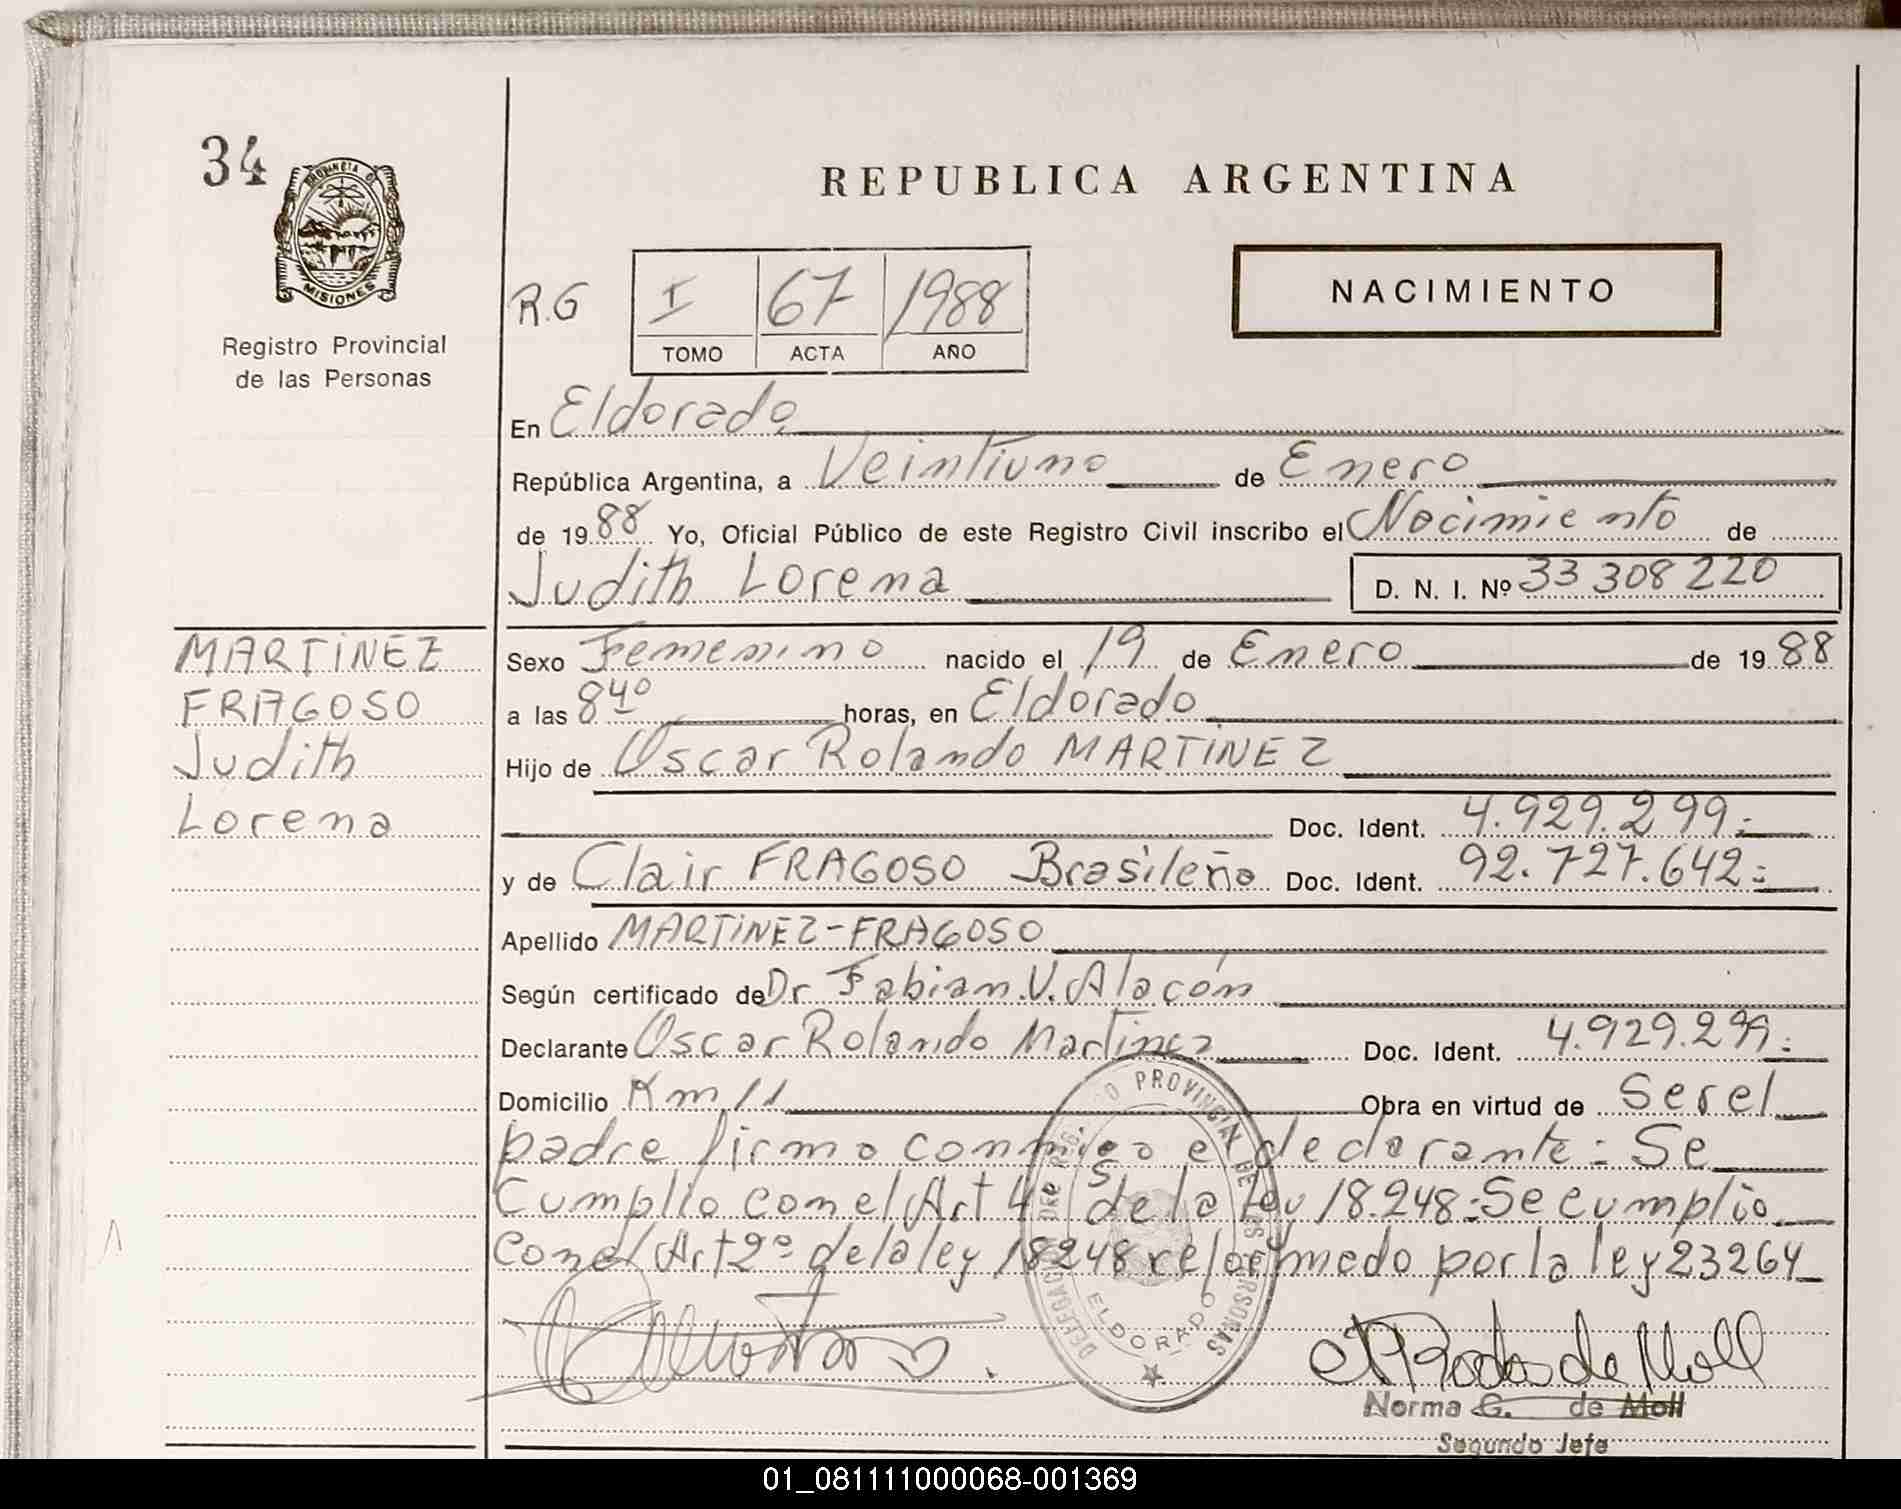 34
PROVINCIA D
MISIONES
Registro Provincial
de las Personas
REPUBLICA ARGENTINA
NACIMIENTO
R.G I 67 1988
TOMO ACTA AÑO
En Eldorado
República Argentina, a Veintiuno de Enero
de 1988 Yo, Oficial Público de este Registro Civil inscribo el Nacimiento de
Judith Lorena D. N. I. Nº 33 308 220
MARTINEZ
FRAGOSO
Judith
Lorena
Sexo Femenino nacido el 19 de Enero de 1988
a las 8 40 horas, en Eldorado
Hijo de Oscar Rolando MARTINEZ
Doc. Ident. 4.929.299.-
y de Clair FRAGOSO Brasileña Doc. Ident. 92.727.642.-
Apellido MARTINEZ-FRAGOSO
Según certificado de Dr Fabian.V.Alacón
Declarante Oscar Rolando Martinez Doc. Ident. 4.929.299.-
Domicilio Km 11 Obra en virtud de Ser el
padre firmo conmigo e declarante: Se
Cumplio con el Art 4 5 de la Ley 18.248:Se cumplio
con el Art 2º de la ley 18248 reformado por la ley 23264
DELEGACION DEL REG. PROVINCIAL DE LAS PERSONAS
ELDORADO
N Rodas de Moll
Norma G. de Moll
Segundo Jefe
01_081111000068-001369